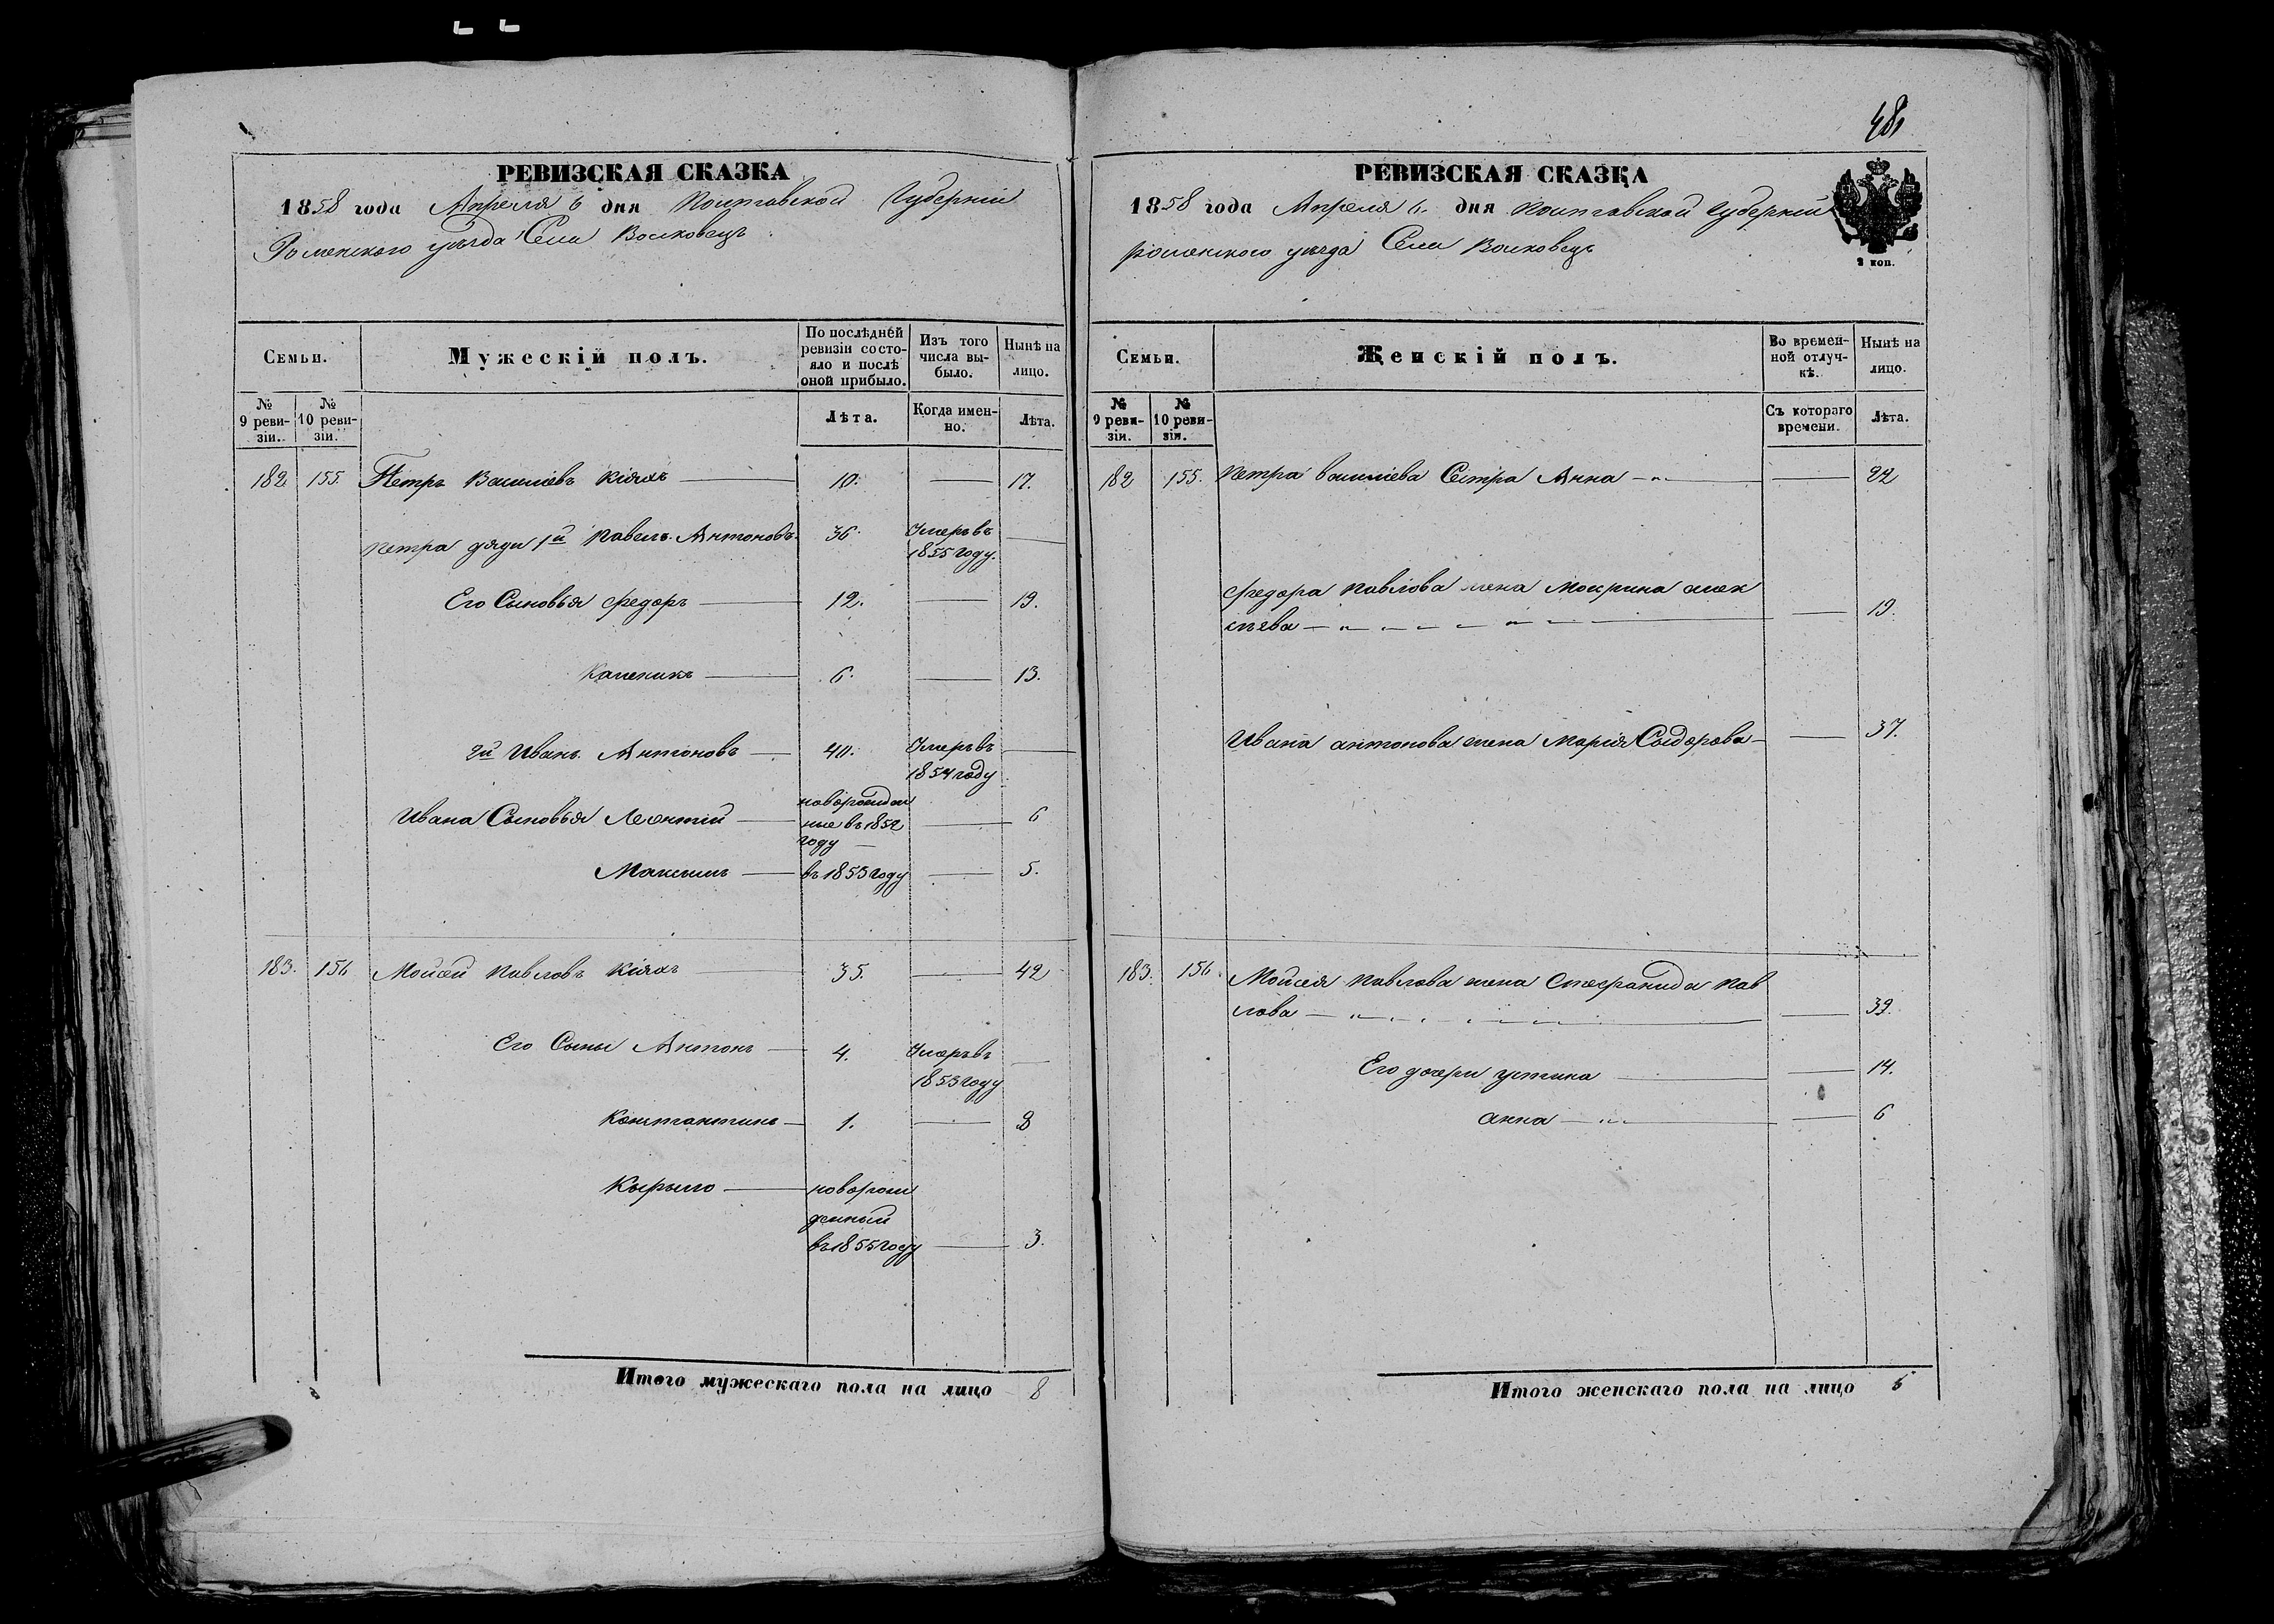 481
РЕВИЗСКАЯ СКАЗКА
1858 года Апреля 6 дня Полтавской Губерніи
Роменского уѣзда Села Волковецъ
Семьи.
Мужескій полъ.
По послѣдней ревизіи состояло и послѣ оной прибыло.
Изъ того числа выбыло.
Нынѣ на лицо.
№ 9 ревизіи.
№ 10 ревизіи.
Лѣта.
Когда именно.
Лѣта.
182 155. Петръ Василіевъ Кіяхъ 10. 17.
Петра дяди 1й Павелъ Антоновъ. 36. Умеръ въ
1855 году.
Его Сыновья Федоръ 12. 19.
Каленикъ 6. 13.
2й Иванъ Антоновъ 40. Умеръ въ
1854 году
Ивана Сыновья Леонтій новорожден
ные въ 1852
году 6
Максимъ въ 1853 году 5.
183. 156 Мойсей Павловъ Кіяхъ 35. 42
Его Сыны Антонъ 4. Умеръ въ
1853 году
Константинъ 1. 8
Кырыло новорож
денный
въ 1855 году 3.
Итого мужескаго пола на лицо 8
РЕВИЗСКАЯ СКАЗКА
1858 года Апреля 6. дня Полтавской Губерніи
роменского уѣзда Села Волковецъ
2 коп.
Семьи.
Женскій полъ.
Во временной отлучкѣ.
Нынѣ на лицо.
№ 9 ревизіи.
№ 10 ревизіи.
Съ котораго времени.
Лѣта.
182 155. Петра василіева Сестра Анна 22
Федора Павлова жена Мокрина алек
сѣева 19.
Ивана антонова жена Марія Сыдорова 37.
183. 156. Мойсея Павлова жена Стефанида Пав
лова 39.
Его дочери устина 14.
анна 6
Итого женскаго пола на лицо 6